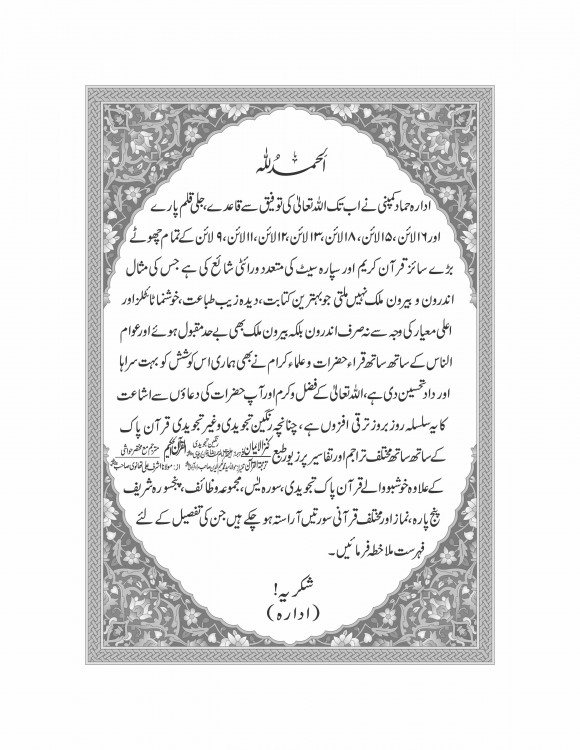 الحمدُ للّٰہ
ادارہ حماد کمپنی نے اب تک اللہ تعالیٰ کی توفیق سے قاعدے، جلی قلم پارے
اور ۱۶ لائن، ۱۵ لائن، ۱۸ لائن، ۱۳ لائن، ۱۲ لائن، ۱۱ لائن، ۹ لائن کے تمام چھوٹے
بڑے سائز قرآن کریم اور سپارہ سیٹ کی متعدد ورائٹی شائع کی ہے جس کی مثال
اندرون و بیرون ملک نہیں ملتی جو بہترین کتابت، دیدہ زیب طباعت، خوشنما ٹائٹلز اور
اعلیٰ معیار کی وجہ سے نہ صرف اندرون بلکہ بیرون ملک بھی بے حد مقبول ہوئے اور عوام
الناس کے ساتھ ساتھ قراء حضرات و علماء کرام نے بھی ہماری اس کوشش کو بہت سراہا
اور داد تحسین دی ہے، اللہ تعالیٰ کے فضل و کرم اور آپ حضرات کی دعاؤں سے اشاعت
کا یہ سلسلہ روز بروز ترقی افزوں ہے، چنانچہ رنگین تجویدی وغیر تجویدی قرآن پاک
کے ساتھ ساتھ مختلف تراجم اور تفاسیر پر زیور طبع کنز الایمان رنگین تجویدی القرآن الحکیم مترجم مع مختصر حواشی
ترجمۃ القرآن از: مولانا اشرف علی تھانوی صاحب
کے علاوہ خوشبو والے قرآن پاک تجویدی، سورہ یٰس، مجموعہ وظائف، پنجسورہ شریف
پنج پارہ، نماز اور مختلف قرآنی سورتیں آراستہ ہو چکے ہیں جن کی تفصیل کے لئے
فہرست ملاخطہ فرمائیں۔
شکریہ!
(ادارہ)